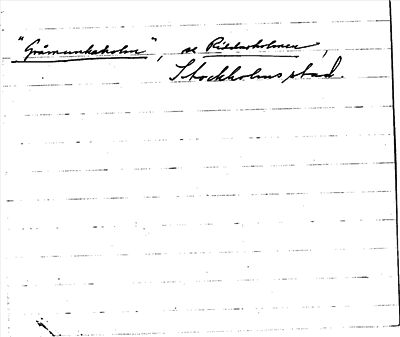 "Gråmunkaholm", se Riddarholmen,
Stockholms stad.